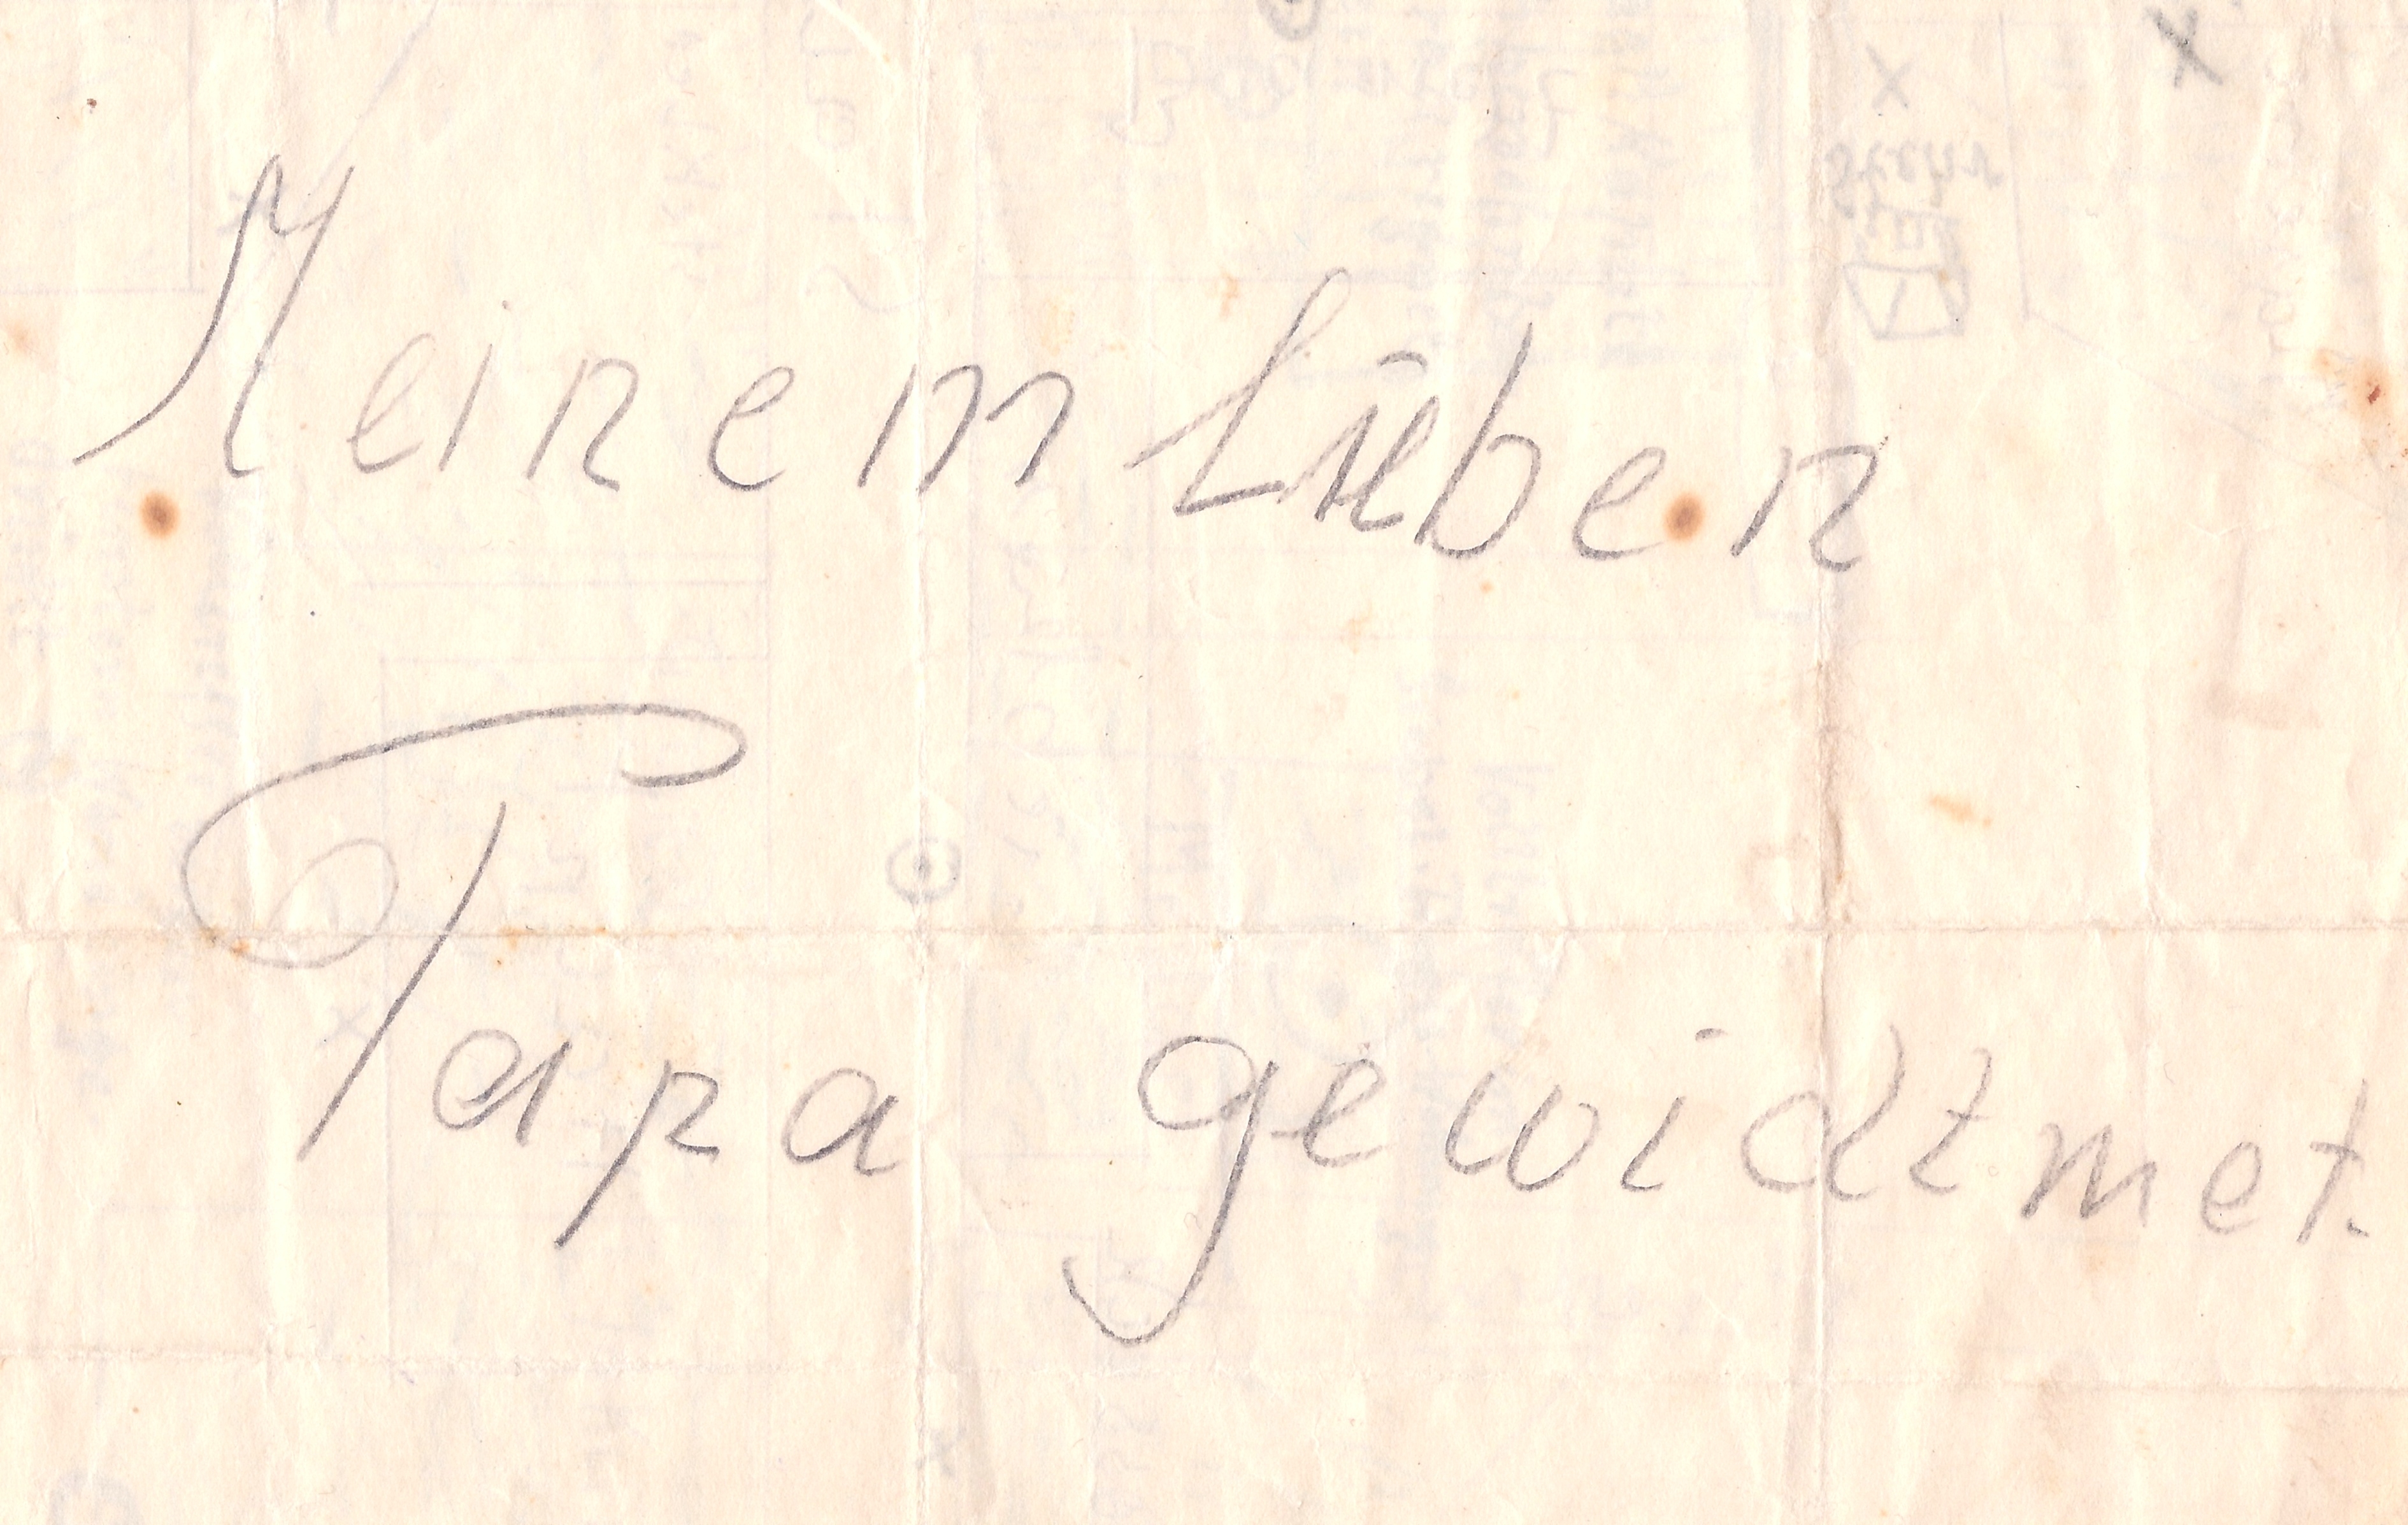 Meinem lieben
Papa gewidtmet.